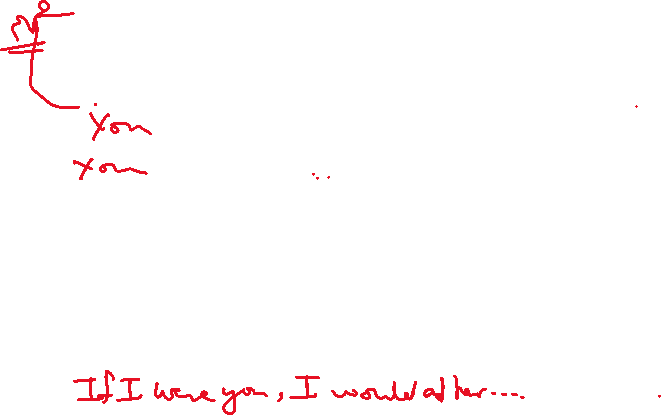 You
You
If I were you, I would